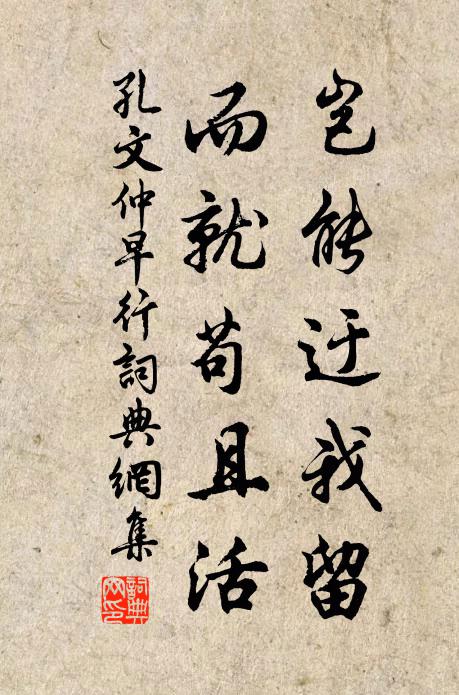 岂能迂我留
而就苟且活
孔文仲早行詞典網集
詞典网印